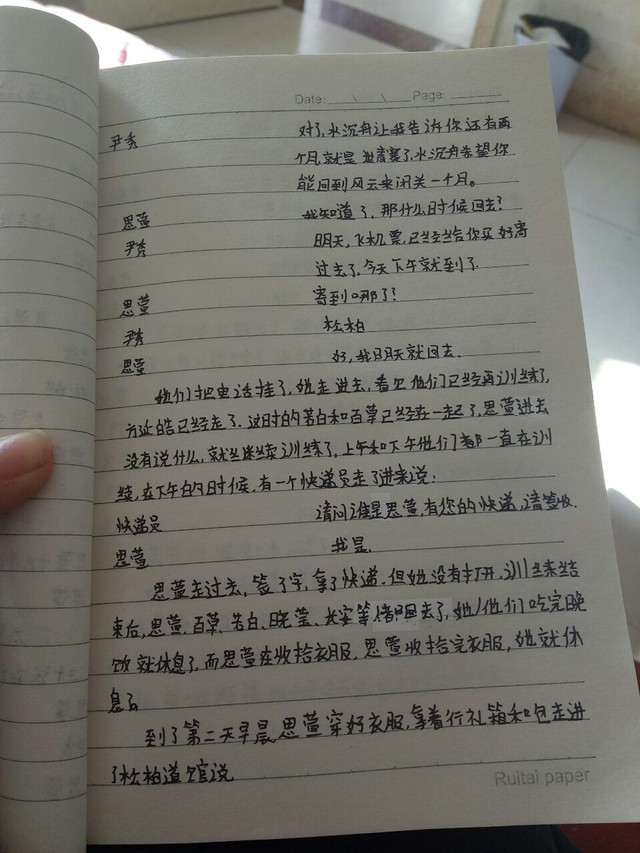 Date: \ \ Page
尹秀 对了,水沉舟让我告诉你还有两
个月,就是世青赛了,水沉舟希望你
能回到风云来闭关一个月。
思萱 我知道了,那什么时候回去?
尹秀 明天,飞机票,已经给你买好寄
过去了,今天下午就到了.
思萱 寄到哪了?
尹秀 松柏
思萱 好,我明天就回去.
她们把电话挂了,她走进去,看见他们已经再训练了,
方廷皓已经走了.这时的若白和百草已经在一起了,思萱进去
没有说什么,就继续训练了,上午和下午他们都一直在训
练,在下午的时候,有一个快递员走了进来说:
快递员 请问谁是思萱,有您的快递,请签收.
思萱 我是.
思萱走过去,签了字,拿了快递.但她没有打开,训练结
束后,思萱、百草、若白、晓莹、长安等都回去了,她/他们吃完晚
饭就休息了,而思萱在收拾衣服,思萱收拾完衣服,她就休
息了
到了第二天早晨,思萱穿好衣服,拿着行礼箱和包走进
了松柏道馆说
Ruitai paper